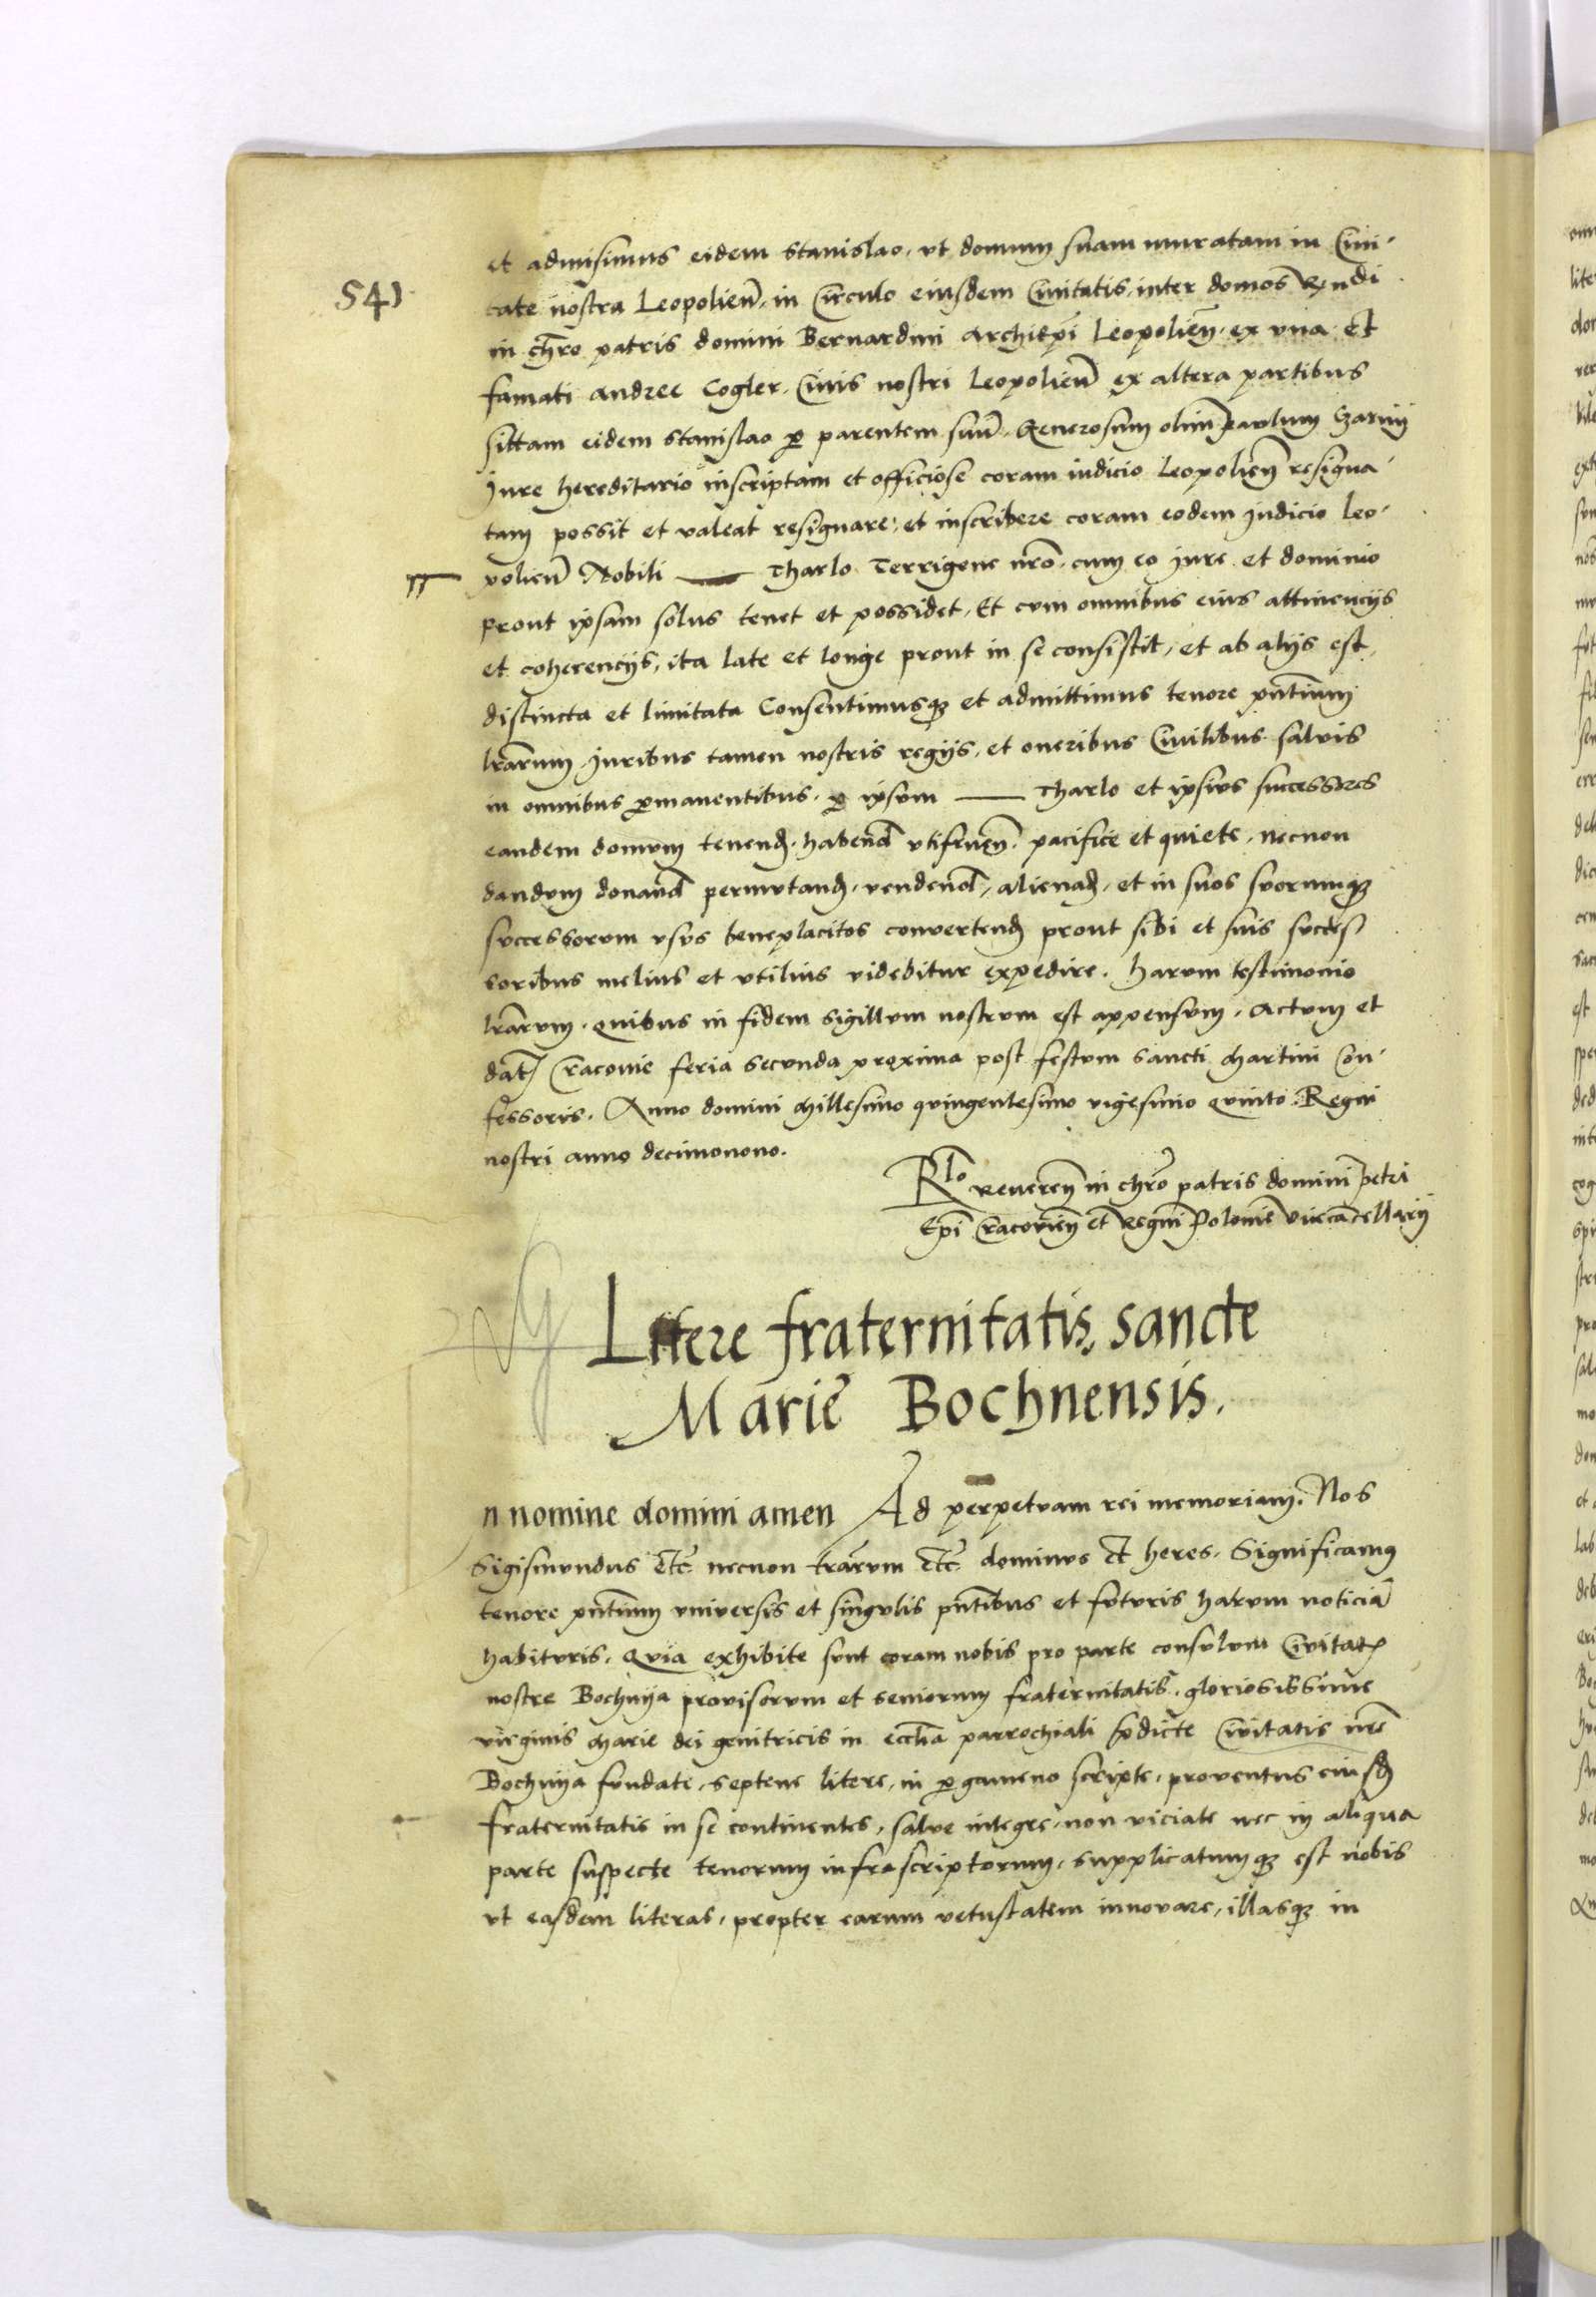 541
et admisimus eidem Stanislao, vt domum suam muratam in Civi-
tate nostra Leopolien̄. in Circulo eiusdem Civitatis, inter domos Rendi
in chr̄o patris domini Bernardini Archiep̄i Leopolien̄. ex vna et
famati Andree Cogler. Civis nostri Leopolien̄ ex altera partibus
sittam eidem Stanislao ꝑ parentem suū. Generosum olim Paulum
Jure hereditario inscriptam et officiose coram iudicio Leopolien̄ resigna-
tam possit et valeat resignare, et inscribere coram eodem Judicio Leo-
polien̄ Nobili —— Tharlo Terrigene nr̄o. cum eo Jure et dominio
prout ipsam solus tenet et possidet, Et cum omnibus eius attinencijs
et coherencijs, ita late et longe prout in se consistit, et ab alijs est
distincta et limitata Consentimusqȝ et admittimus tenore pn̄tium
lr̄arum. Juribus tamen nostris regijs, et oneribus Civilibus salvis
in omnibus ꝑmanentibus. ꝑ ipsum —— Tharlo et ipsius successores
eandem domum tenend̄. habend̄ vtifruen̄. pacifice et quiete. necnon
dandum donand̄ permutand̄. vendend̄, alienad̄. et in suos suorumqȝ
successorum vsus beneplacitos convertend̄ prout sibi et suis succes-
soribus melius et vtilius videbitur expedire. Harum testimonio
lr̄arum. quibus in fidem Sigillum nostrum est appensum. Actum et
dat̄ Cracovie feria secunda proxima post festum Sancti Martini Con-
fessoris. Anno domini Millesimo quingentesimo vigesimo quinto. Regni
nostri anno decimonono.
R̄lo Reveren̄ in chr̄o patris domini Petri
Ep̄i Cracovien̄ et Regni Polonie vicecancellarij
Littere fraternitatis sancte
Marie Bochnensis.
n nomine domini amen Ad perpetuam rei memoriam. Nos
Sigismundus etc̄ necnon trārum etc̄ dominus et heres. Significamus
tenore pn̄tium vniversis et singulis pn̄tibus et futuris harum noticiā
habituris. Quia exhibite sunt coram nobis pro parte consulum Civitat̄
nostre Bochnya provisorum et seniorum fraternitatis. gloriosissime
virginis Marie dei genitricis in eccl̄ia parrochiali p̄dicte Civitatis nr̄e
Bochnya fundate, septem litere, in ꝑgameno scripte, proventus eiusd̄
fraternitatis in se continentes, salve integre, non viciate nec in aliqua
parte suspecte tenorum infrascriptorum, supplicatumqȝ est nobis
vt easdem literas, propter earum vetustatem innovare, illasqȝ in